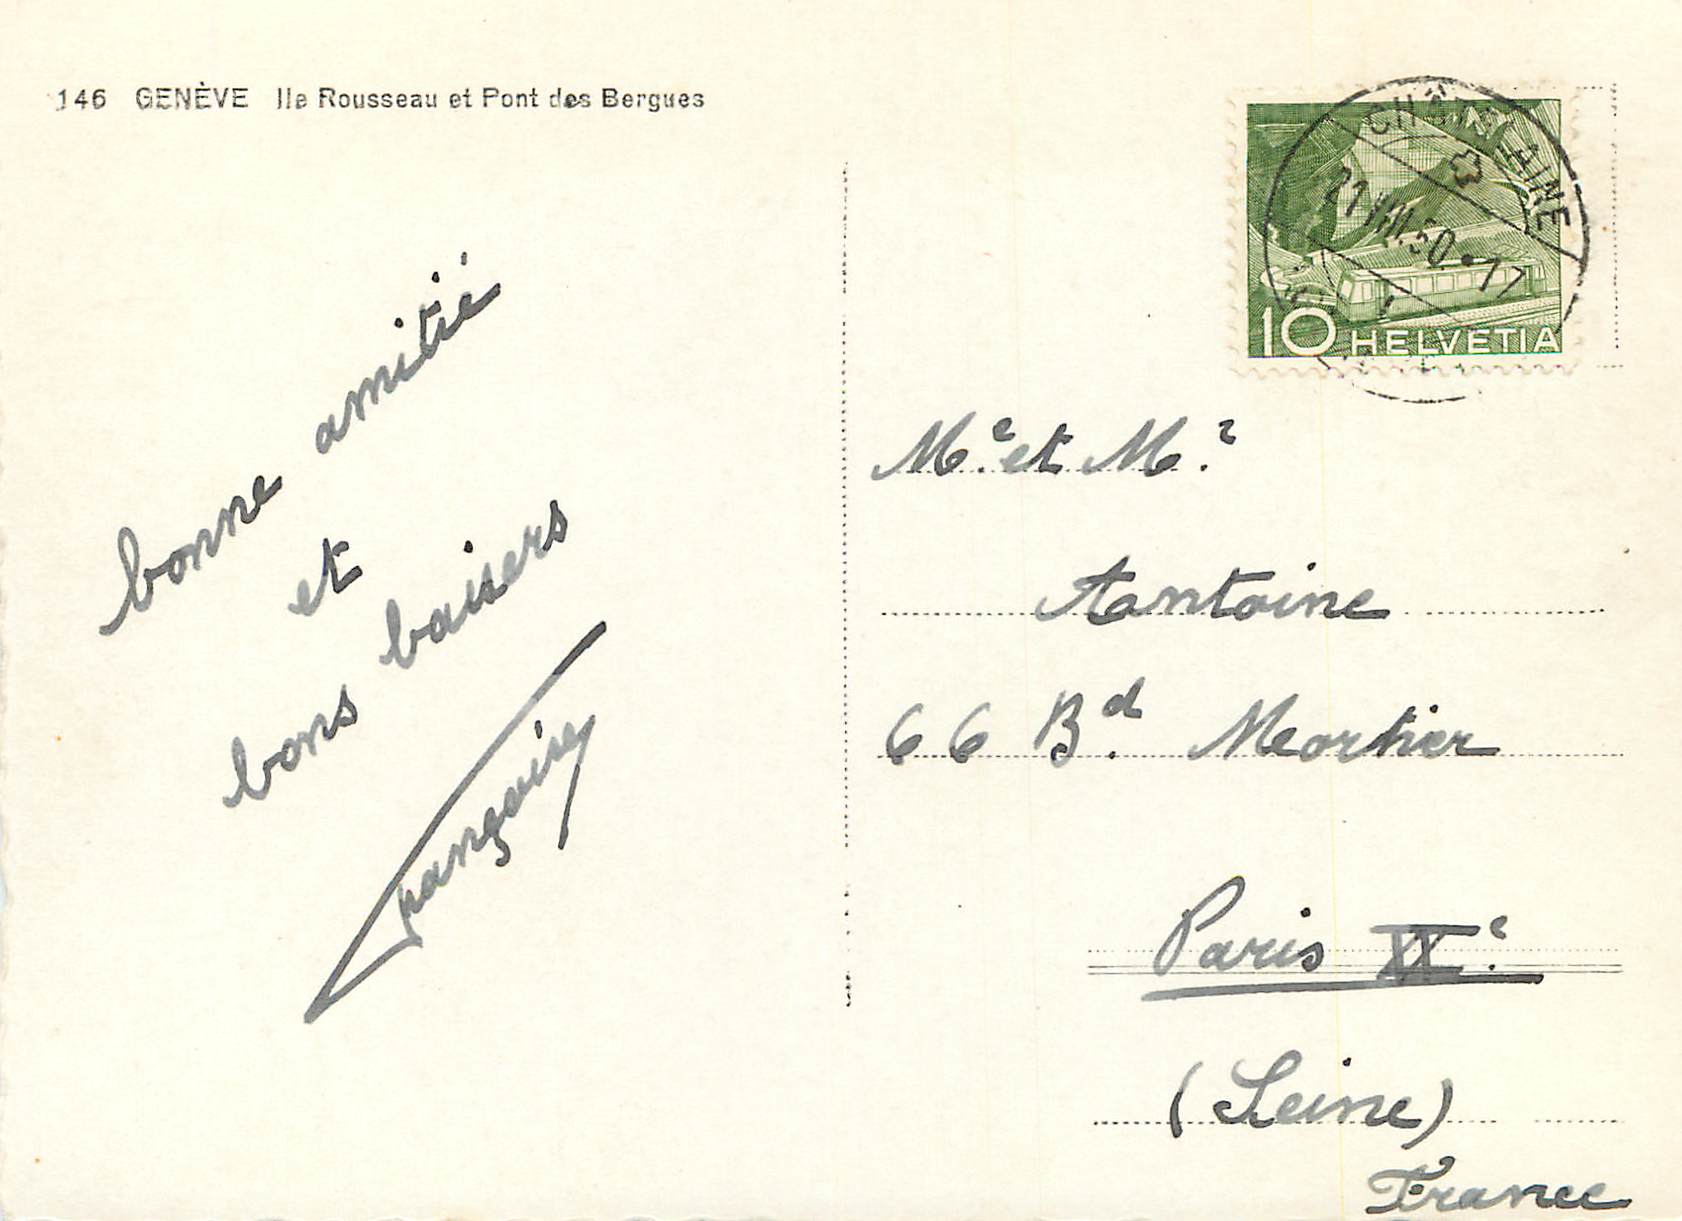 146 GENÈVE Ile Rousseau et Pont des Bergues
bonne amitié
et
bons baisers
Françoise
CHÂTELAINE
21.VIII.50.17
10 HELVETIA
Me. et Mr.
Antoine
66 Bd. Mortier
Paris XXe.
(Seine)
France